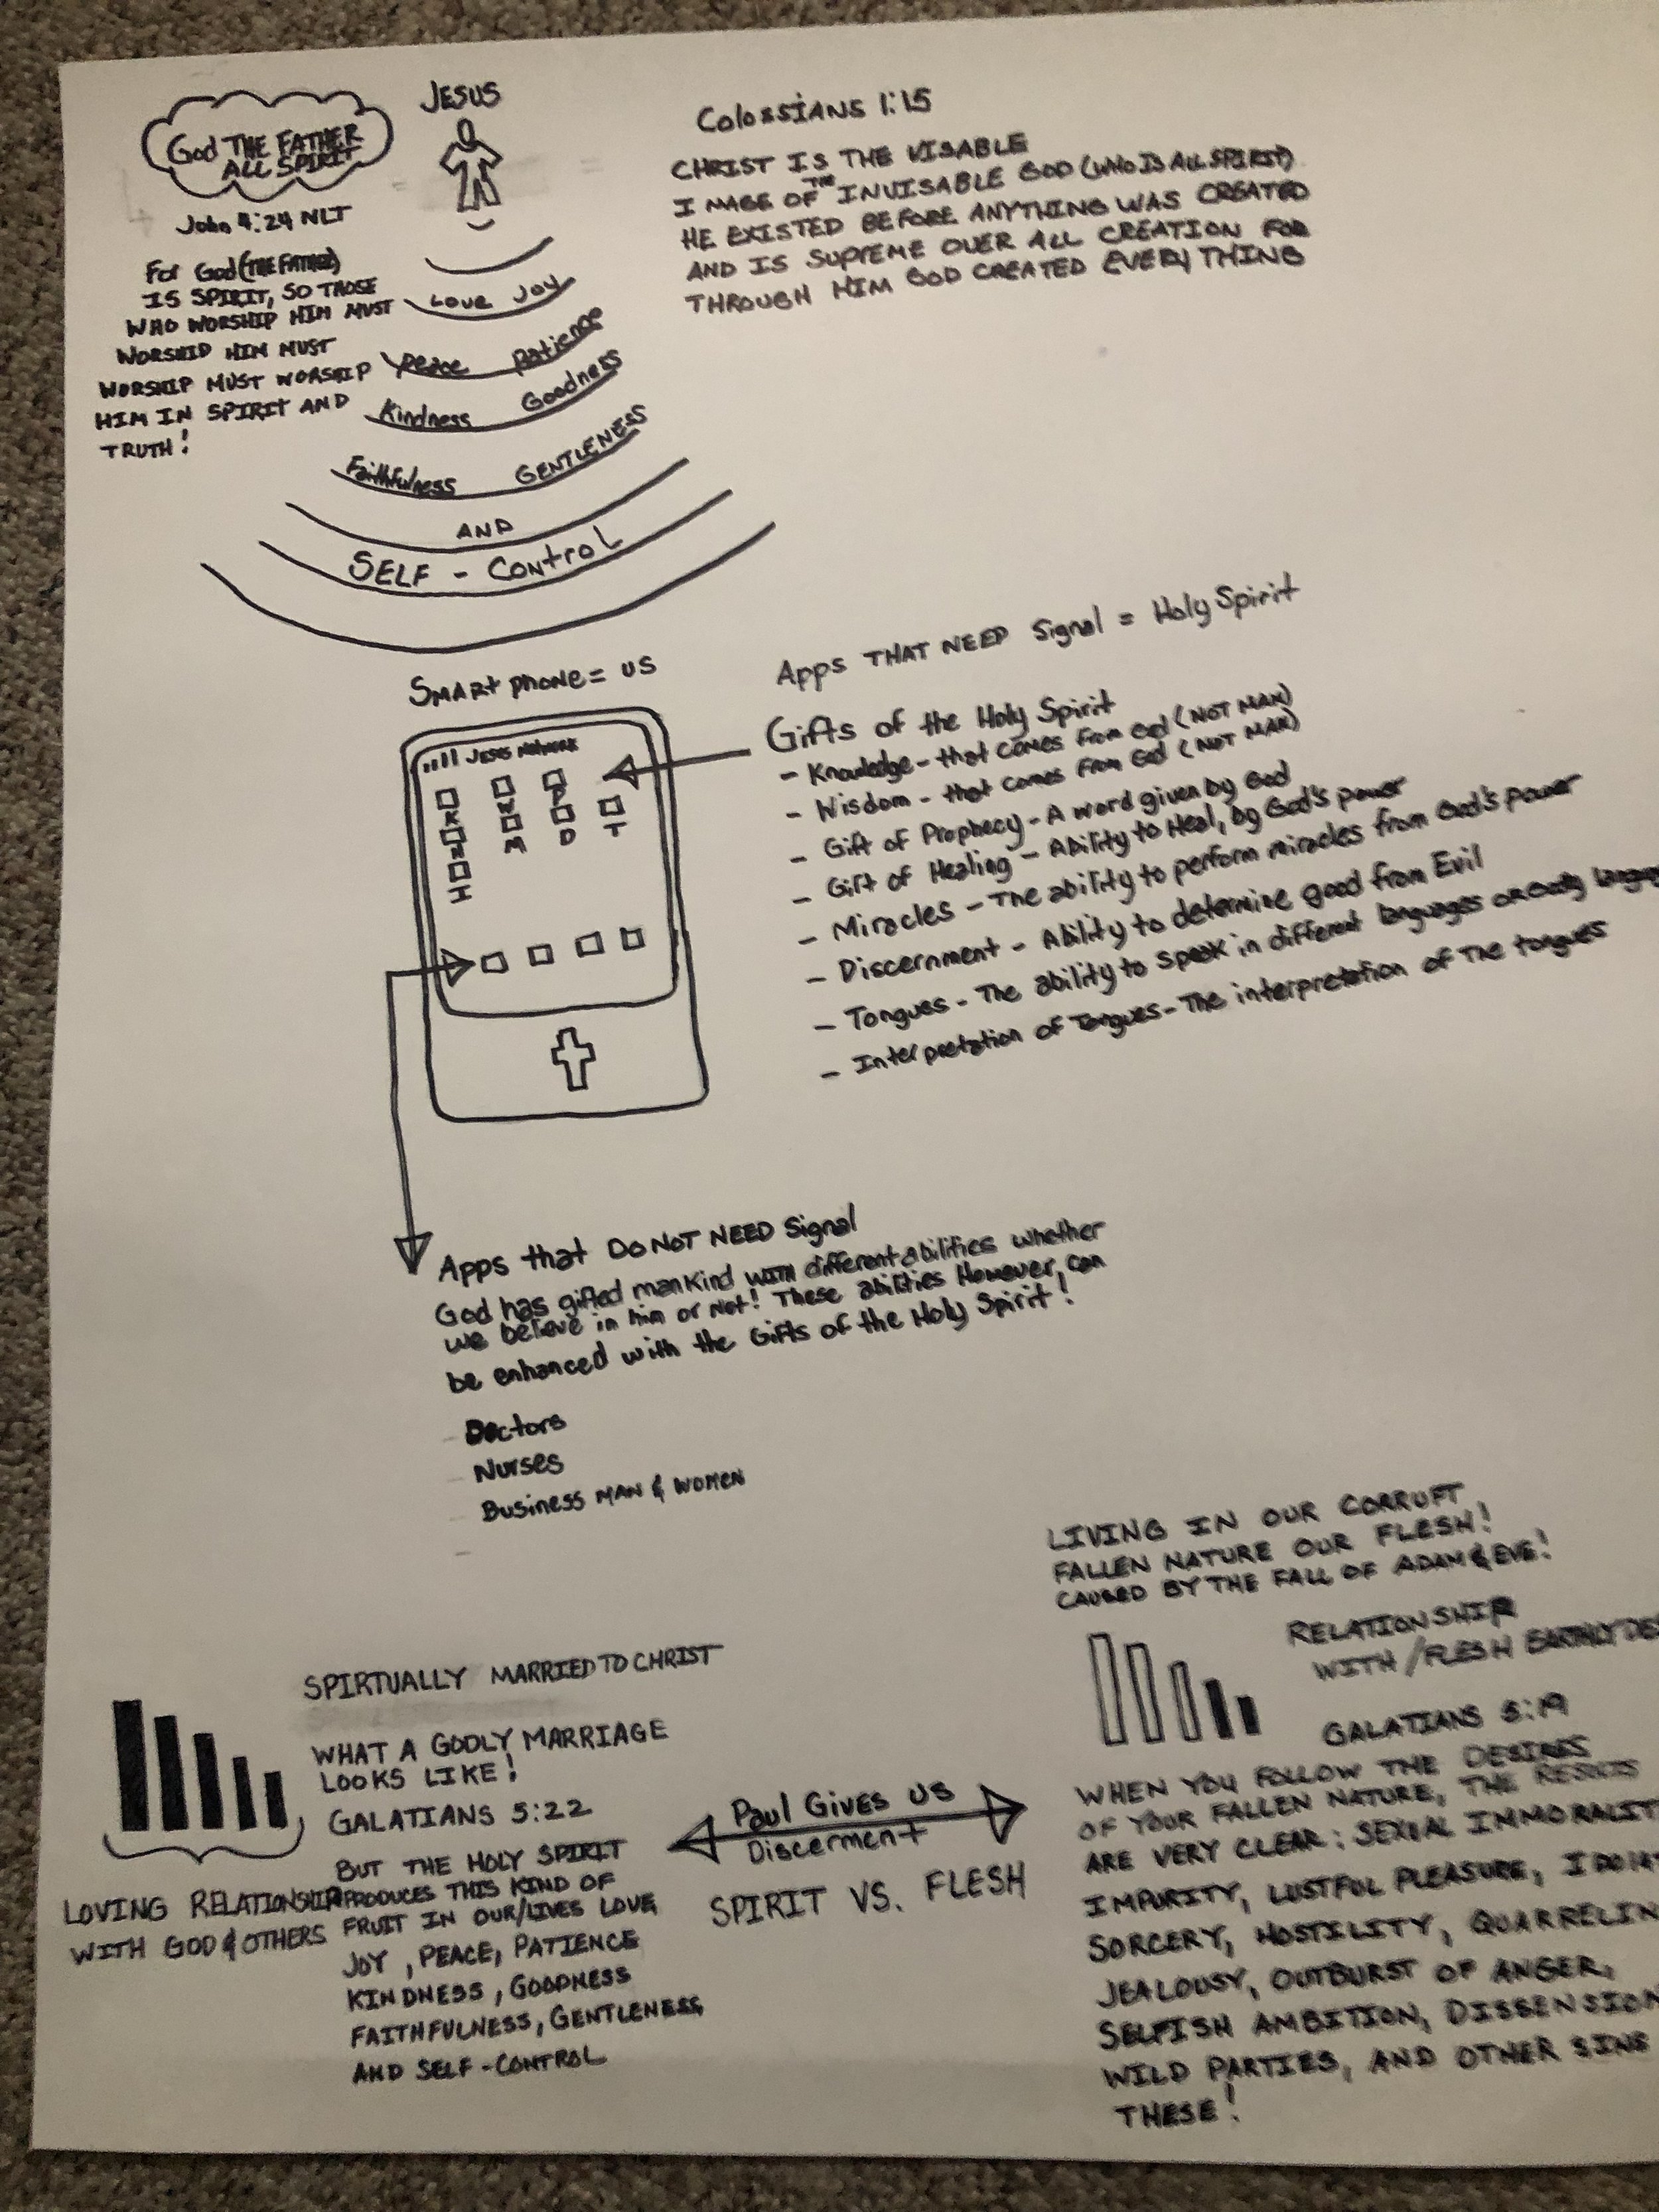 God THE FATHER
ALL SPIRIT
John 4:24 NLT
For God (THE FATHER)
IS SPIRIT, SO THOSE
WHO WORSHIP HIM MUST
WORSHIP HIM MUST
WORSHIP MUST WORSHIP
HIM IN SPIRIT AND
TRUTH!
JESUS
LOVE JOY
Peace patience
Kindness Goodness
Faithfulness GENTLENESS
AND
SELF - ControL
Colossians 1:15
CHRIST IS THE VISABLE
IMAGE OF THE INVISABLE GOD (WHO IS ALL SPIRIT)
HE EXISTED BEFORE ANYTHING WAS CREATED
AND IS SUPREME OVER ALL CREATION FOR
THROUGH HIM GOD CREATED EVERYTHING
SMARt PHONE = US
JESUS NETWORK
P
M D T
H
Apps THAT NEED Signal = Holy Spirit
Gifts of the Holy Spirit
- Knowledge - that comes from God (NOT MAN)
- Wisdom - that comes from God (NOT MAN)
- Gift of Prophecy - A word given by God
- Gift of Healing - Ability to Heal, by God's power
- Miracles - The ability to perform miracles from God's power
- Discernment - Ability to determine good from Evil
- Tongues - The ability to speak in different languages or
- Interpretation of Tongues - The interpretation of The tongues
Apps that DO NOT NEED Signal
God has gifted mankind WITH different abilities whether
we believe in him or Not! These abilities However, can
be enhanced with the Gifts of the Holy Spirit!
- Doctors
- Nurses
- Business MAN & WOMEN
-
SPIRTUALLY MARRIED TO CHRIST
WHAT A GODLY MARRIAGE
LOOKS LIKE!
GALATIANS 5:22
BUT THE HOLY SPIRIT
PRODUCES THIS KIND OF
FRUIT IN OUR/LIVES LOVE
JOY, PEACE, PATIENCE
KINDNESS, GOODNESS
FAITHFULNESS, GENTLENESS
AND SELF-CONTROL
LOVING RELATIONSHIP
WITH GOD & OTHERS
Paul Gives US
Discerment
SPIRIT VS. FLESH
LIVING IN OUR CORRUPT
FALLEN NATURE OUR FLESH!
CAUSED BY THE FALL OF ADAM & EVE!
RELATIONSHIP
WITH/FLESH EARTHLY DES
GALATIANS 5:19
WHEN YOU FOLLOW THE DESIRES
OF YOUR FALLEN NATURE, THE RESULTS
ARE VERY CLEAR: SEXUAL IMMORALIT
IMPURITY, LUSTFUL PLEASURE,
SORCERY, HOSTILITY, QUARRELIN
JEALOUSY, OUTBURST OF ANGER,
SELFISH AMBITION, DISSENSION
WILD PARTIES, AND OTHER SINS
THESE!